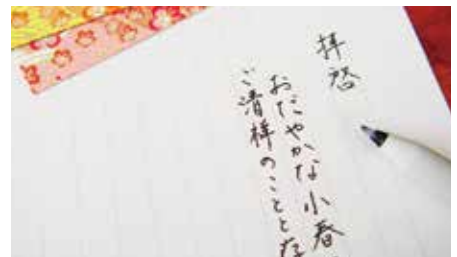 拝啓
おだやかな小春
ご清祥のことと存